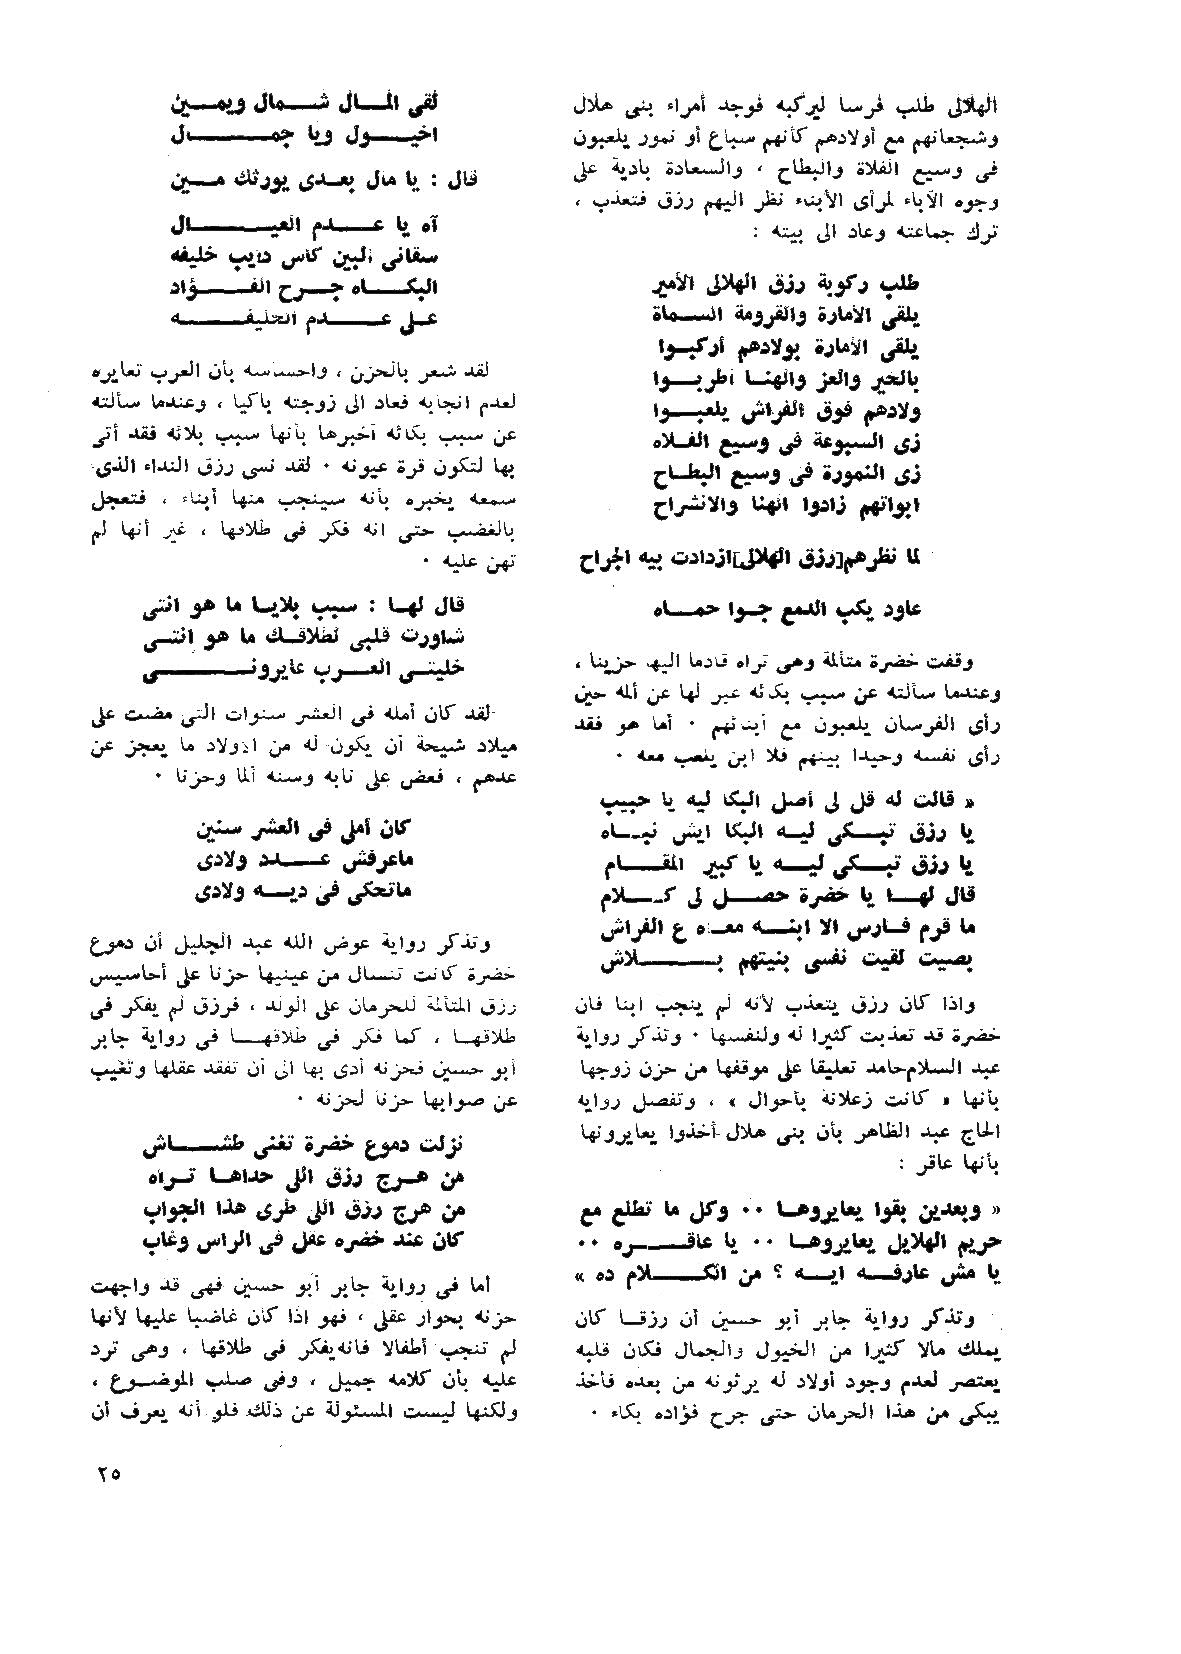 الهلالى طلب فرسا ليركبه فوجد أمراء بنى هلال
وشجعانهم مع أولادهم كأنهم سباع أو نمور يلعبون
فى وسيع الفلاة والبطاح ، والسعادة بادية على
وجوه الآباء لمرأى الأبناء نظر اليهم رزق فتعذب ،
ترك جماعته وعاد الى بيته :
طلب ركوبة رزق الهلالى الأمير
يلقى الأمارة والقرومة السماة
يلقى الأمارة بولادهم أركبوا
بالخير والعز والهنا اطربوا
ولادهم فوق الفراش يلعبوا
زى السبوعة فى وسيع الفلاه
زى النمورة فى وسيع البطاح
ابواتهم زادوا الهنا والانشراح
لما نظرهم[رزق الهلالى]ازدادت بيه الجراح
عاود يكب الدمع جوا حماه
وقفت خضرة متألمة وهى تراه قادما اليها حزينا ،
وعندما سألته عن سبب بكائه عبر لها عن ألمه حين
رأى الفرسان يلعبون مع أبنائهم ٠ أما هو فقد
رأى نفسه وحيدا بينهم فلا ابن يلعب معه ٠
« قالت له قل لى أصل البكا ليه يا حبيب
يا رزق تبكى ليه البكا ايش نماه
يا رزق تبكى ليه يا كبير المقام
قال لها يا خضرة حصل لى كلام
ما قرم فارس الا ابنه معاه ع الفراش
بصيت لقيت نفسى بنيتهم بلاش
واذا كان رزق يتعذب لأنه لم ينجب ابنا فان
خضرة قد تعذبت كثيرا له ولنفسها ٠ وتذكر رواية
عبد السلام حامد تعليقا على موقفها من حزن زوجها
بأنها « كانت زعلانة بأحوال » ، وتفصل رواية
الحاج عبد الظاهر بأن بنى هلال أخذوا يعايرونها
بأنها عاقر :
« وبعدين بقوا يعايروها ٠٠ وكل ما تطلع مع
حريم الهلايل يعايروها ٠٠ يا عاقره ٠٠
يا مش عارفه ايه ؟ من الكلام ده »
وتذكر رواية جابر أبو حسين أن رزقا كان
يملك مالا كثيرا من الخيول والجمال فكان قلبه
يعتصر لعدم وجود أولاد له يرثونه من بعده فأخذ
يبكى من هذا الحرمان حتى جرح فؤاده بكاء ٠
لقى المال شمال ويمين
اخيول ويا جمال
قال : يا مال بعدى يورثك مين
آه يا عدم العيال
سقانى البين كاس دايب خليفه
البكاه جرح الفؤاد
على عدم الخليفه
لقد شعر بالحزن ، واحساسه بأن العرب تعايره
لعدم انجابه فعاد الى زوجته باكيا ، وعندما سألته
عن سبب بكائه أخبرها بأنها سبب بلائه فقد أتى
بها لتكون قرة عيونه ٠ لقد نسى رزق النداء الذى
سمعه يخبره بأنه سينجب منها أبناء ، فتعجل
بالغضب حتى انه فكر فى طلاقها ، غير أنها لم
تهن عليه ٠
قال لها : سبب بلايا ما هو انتى
شاورت قلبى لطلاقك ما هو انتى
خليتى العرب عايرونى
لقد كان أمله فى العشر سنوات التى مضت على
ميلاد شيحة أن يكون له من الاولاد ما يعجز عن
عدهم ، فعض على نابه وسنه ألما وحزنا ٠
كان أملى فى العشر سنين
ماعرفش عدد ولادى
ماتحكى فى ديه ولادى
وتذكر رواية عوض الله عبد الجليل أن دموع
خضرة كانت تنسال من عينيها حزنا على أحاسيس
رزق المتألمة للحرمان على الولد ، فرزق لم يفكر فى
طلاقها ، كما فكر فى طلاقها فى رواية جابر
أبو حسين فحزنه أدى بها الى أن تفقد عقلها وتغيب
عن صوابها حزنا لحزنه ٠
نزلت دموع خضرة تغنى طشاش
من هرج رزق اللى حداها تراه
من هرج رزق اللى طرى هذا الجواب
كان عند خضره عقل فى الراس وغاب
أما فى رواية جابر أبو حسين فهى قد واجهت
حزنه بحوار عقلى ، فهو اذا كان غاضبا عليها لأنها
لم تنجب أطفالا فانه يفكر فى طلاقها ، وهى ترد
عليه بأن كلامه جميل ، وفى صلب الموضوع ،
ولكنها ليست المسئولة عن ذلك فلو أنه يعرف أن
٢٥